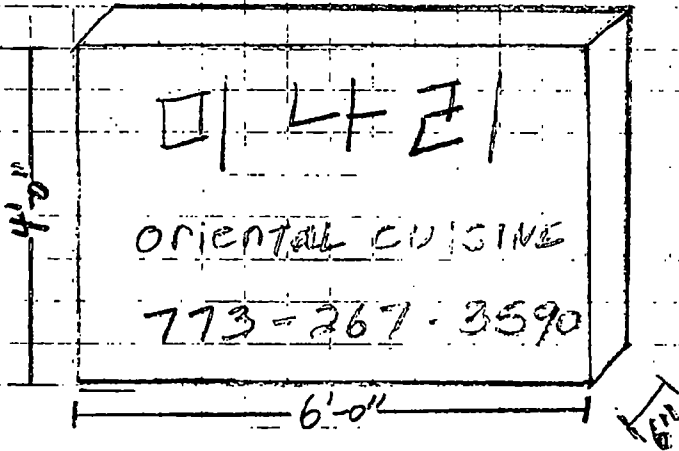 미나리
oriental CUISINE
773-267-3590
4'-0"
6'-0"
6"